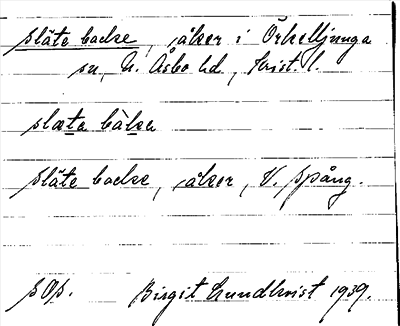 släte backe, åker i Örkelljunga
sn, N. Åsbo hd, Krist. l.
slæta bàka
släte backe, åker, V. Spång.
sOp. Birgit Lundkvist 1939.